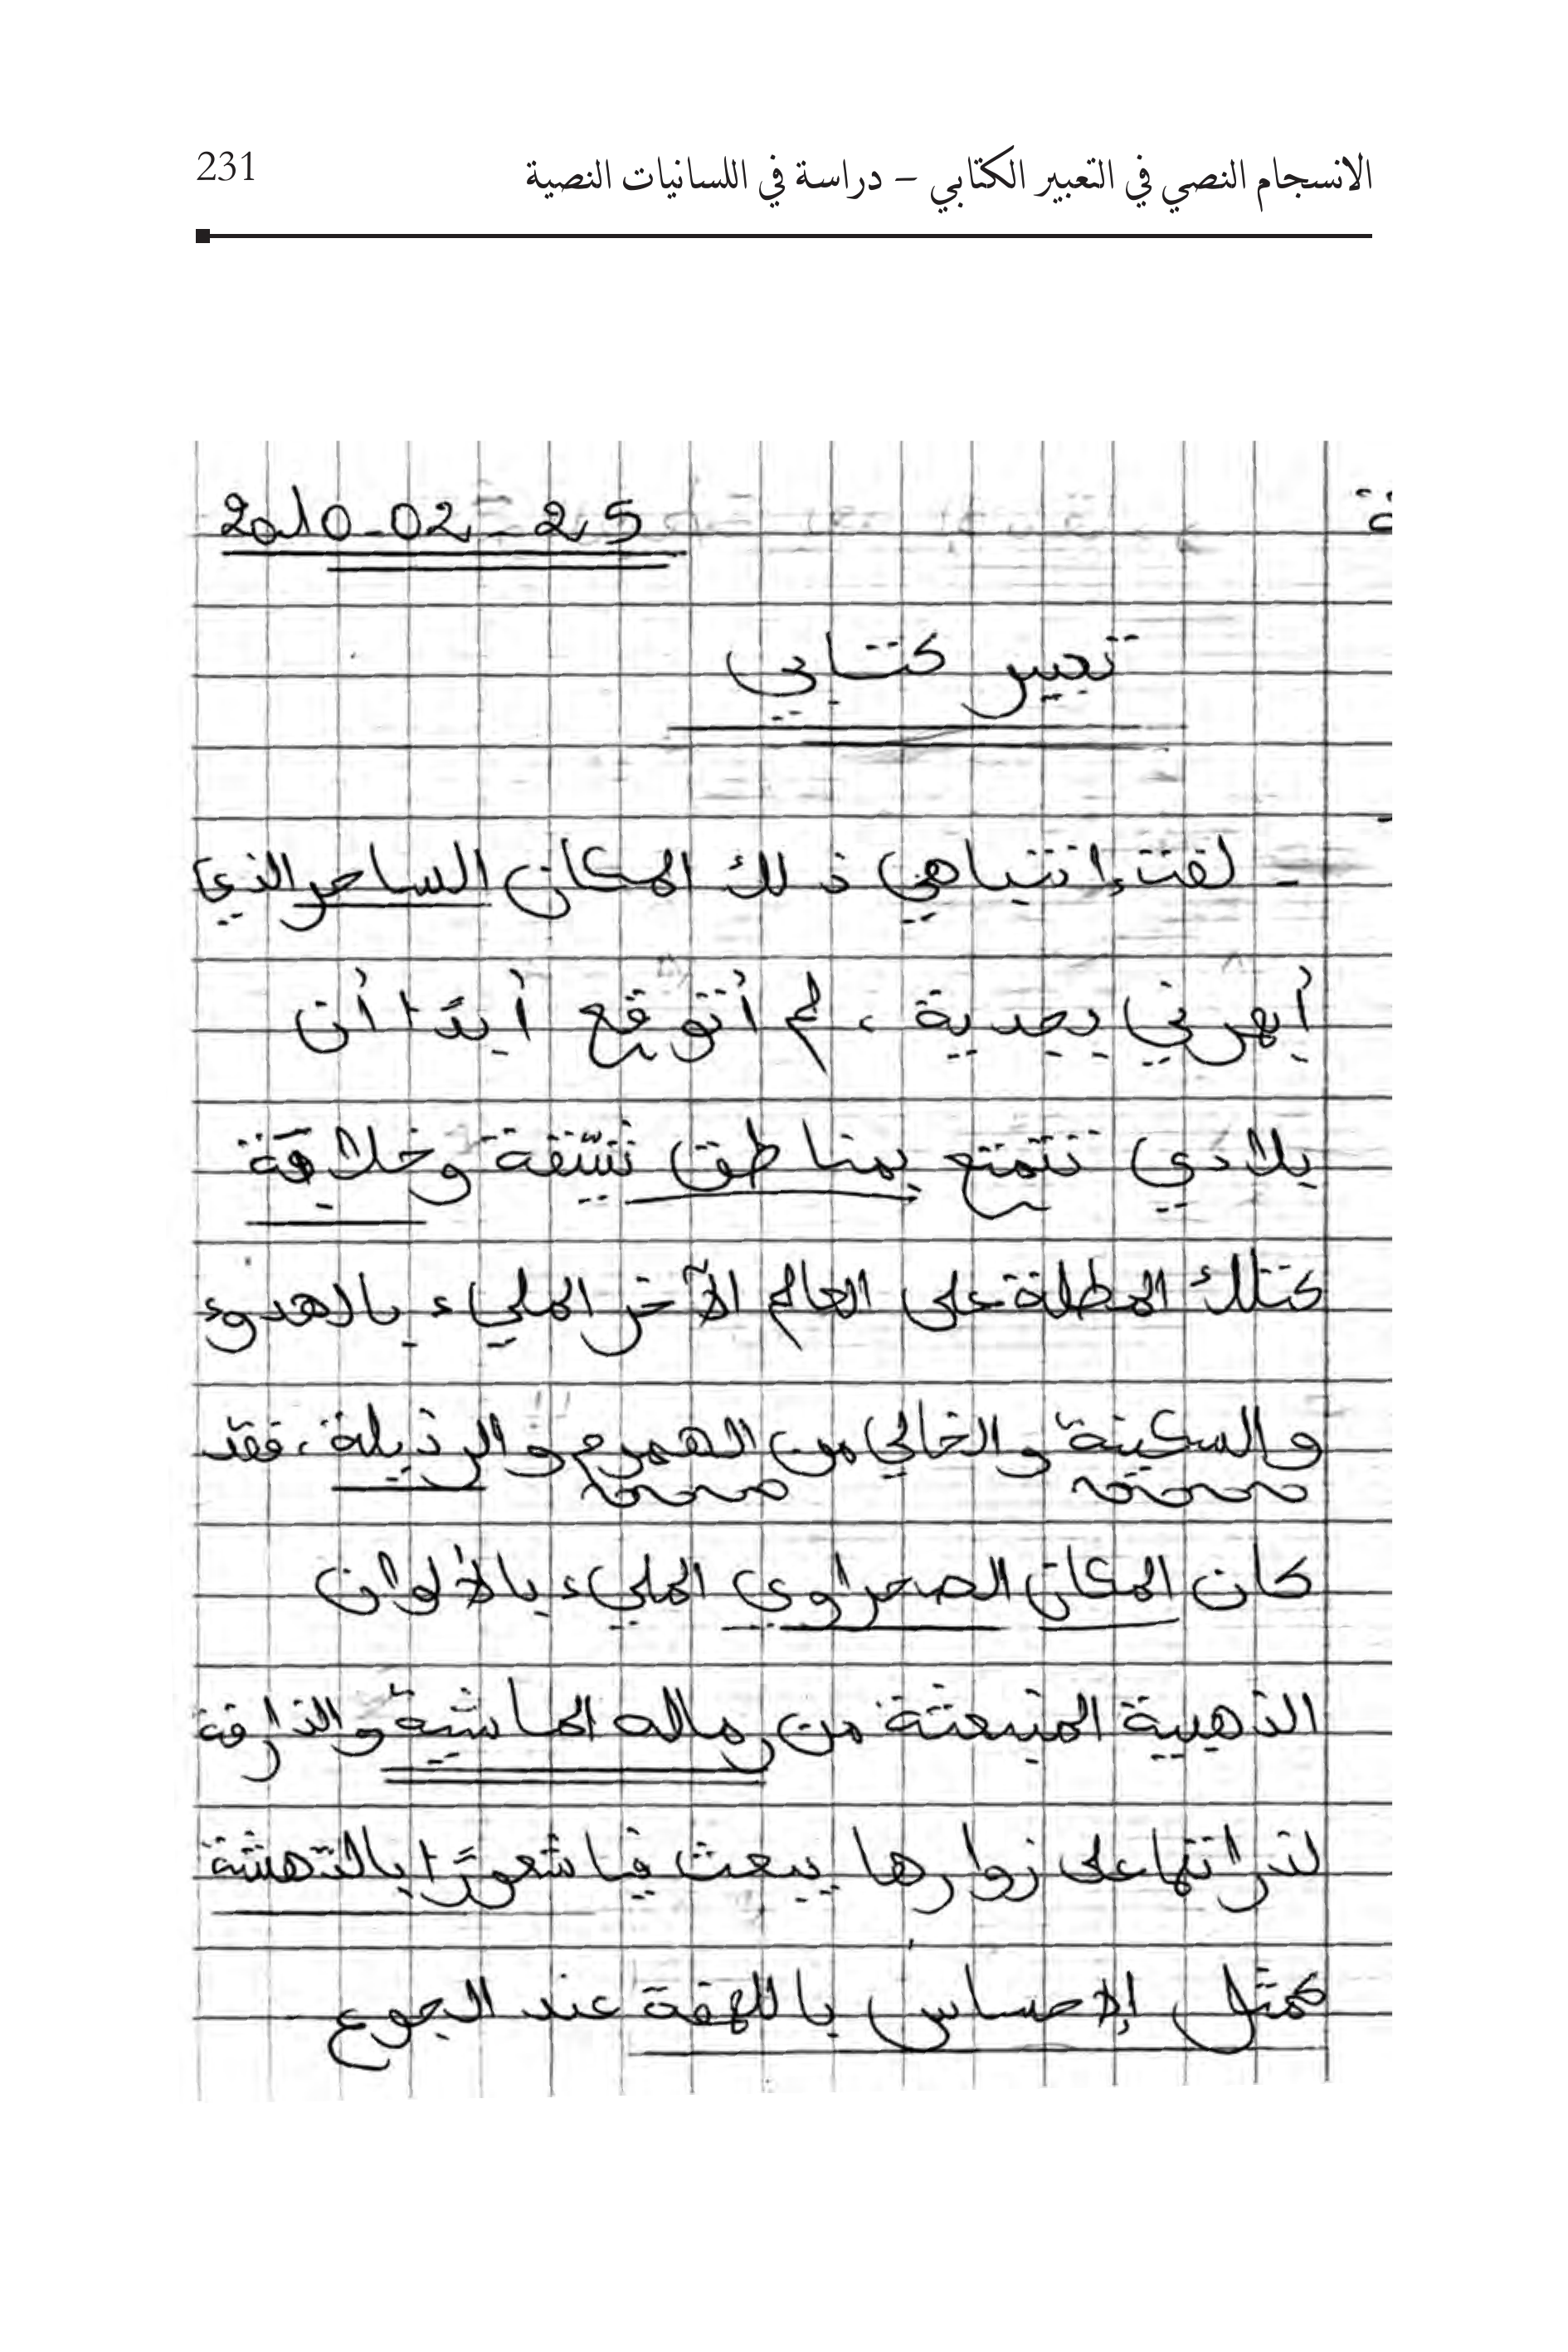 الانسجام النصي في التعبير الكتابي – دراسة في اللسانيات النصية 231
2010-02-25
تعبير كتابي
- لفتت إنتباهي ذلك المكان الساحر الذي
أبهرني بجدية، لم أتوقع أبدًا أن
بلادي تتمتع بمناطق شيّقة وخلاقة
كتلك المطلة على العالم الآخر المليء بالهدوء
والسكينة والخالي من الهموم والرذيلة، فقد
كان المكان الصحراوي المليء بالألوان
الذهبية المنبعثة من رماله الماشية والذارفة
لذراتها على زوارها يبعث فينا شعورًا بالدّهشة
كمثل الإحساس باللهفة عند الجوع